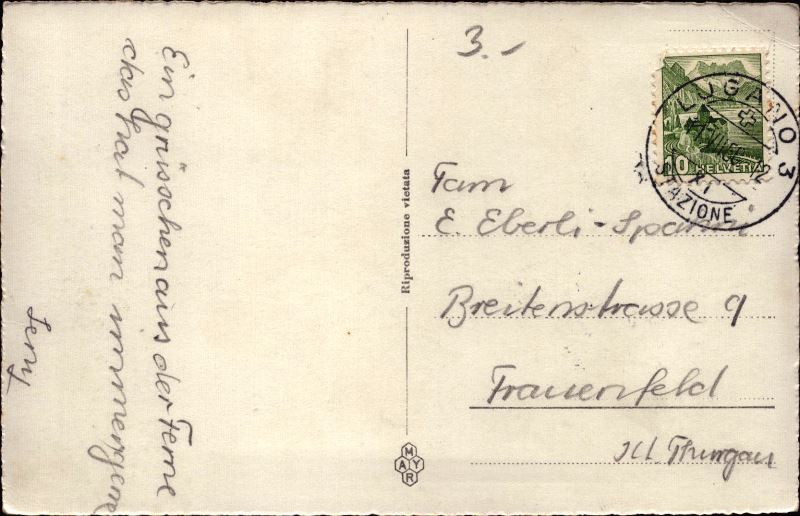 Ein grüsschen aus der Ferne
das hat man immer gerne
3.-
Riproduzione vietata
MAYR
10 HELVETIA
LUGANO 3
STAZIONE
Fam
E. Eberli-Spanni
Breitenstrasse 9
Frauenfeld
Thurgau